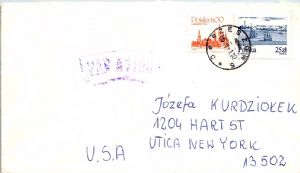 Polska 6.00
Polska 25zł
PAR AVION
Józefa KURDZIOŁEK
1204 HART ST
UTICA NEW YORK
U.S.A
13502